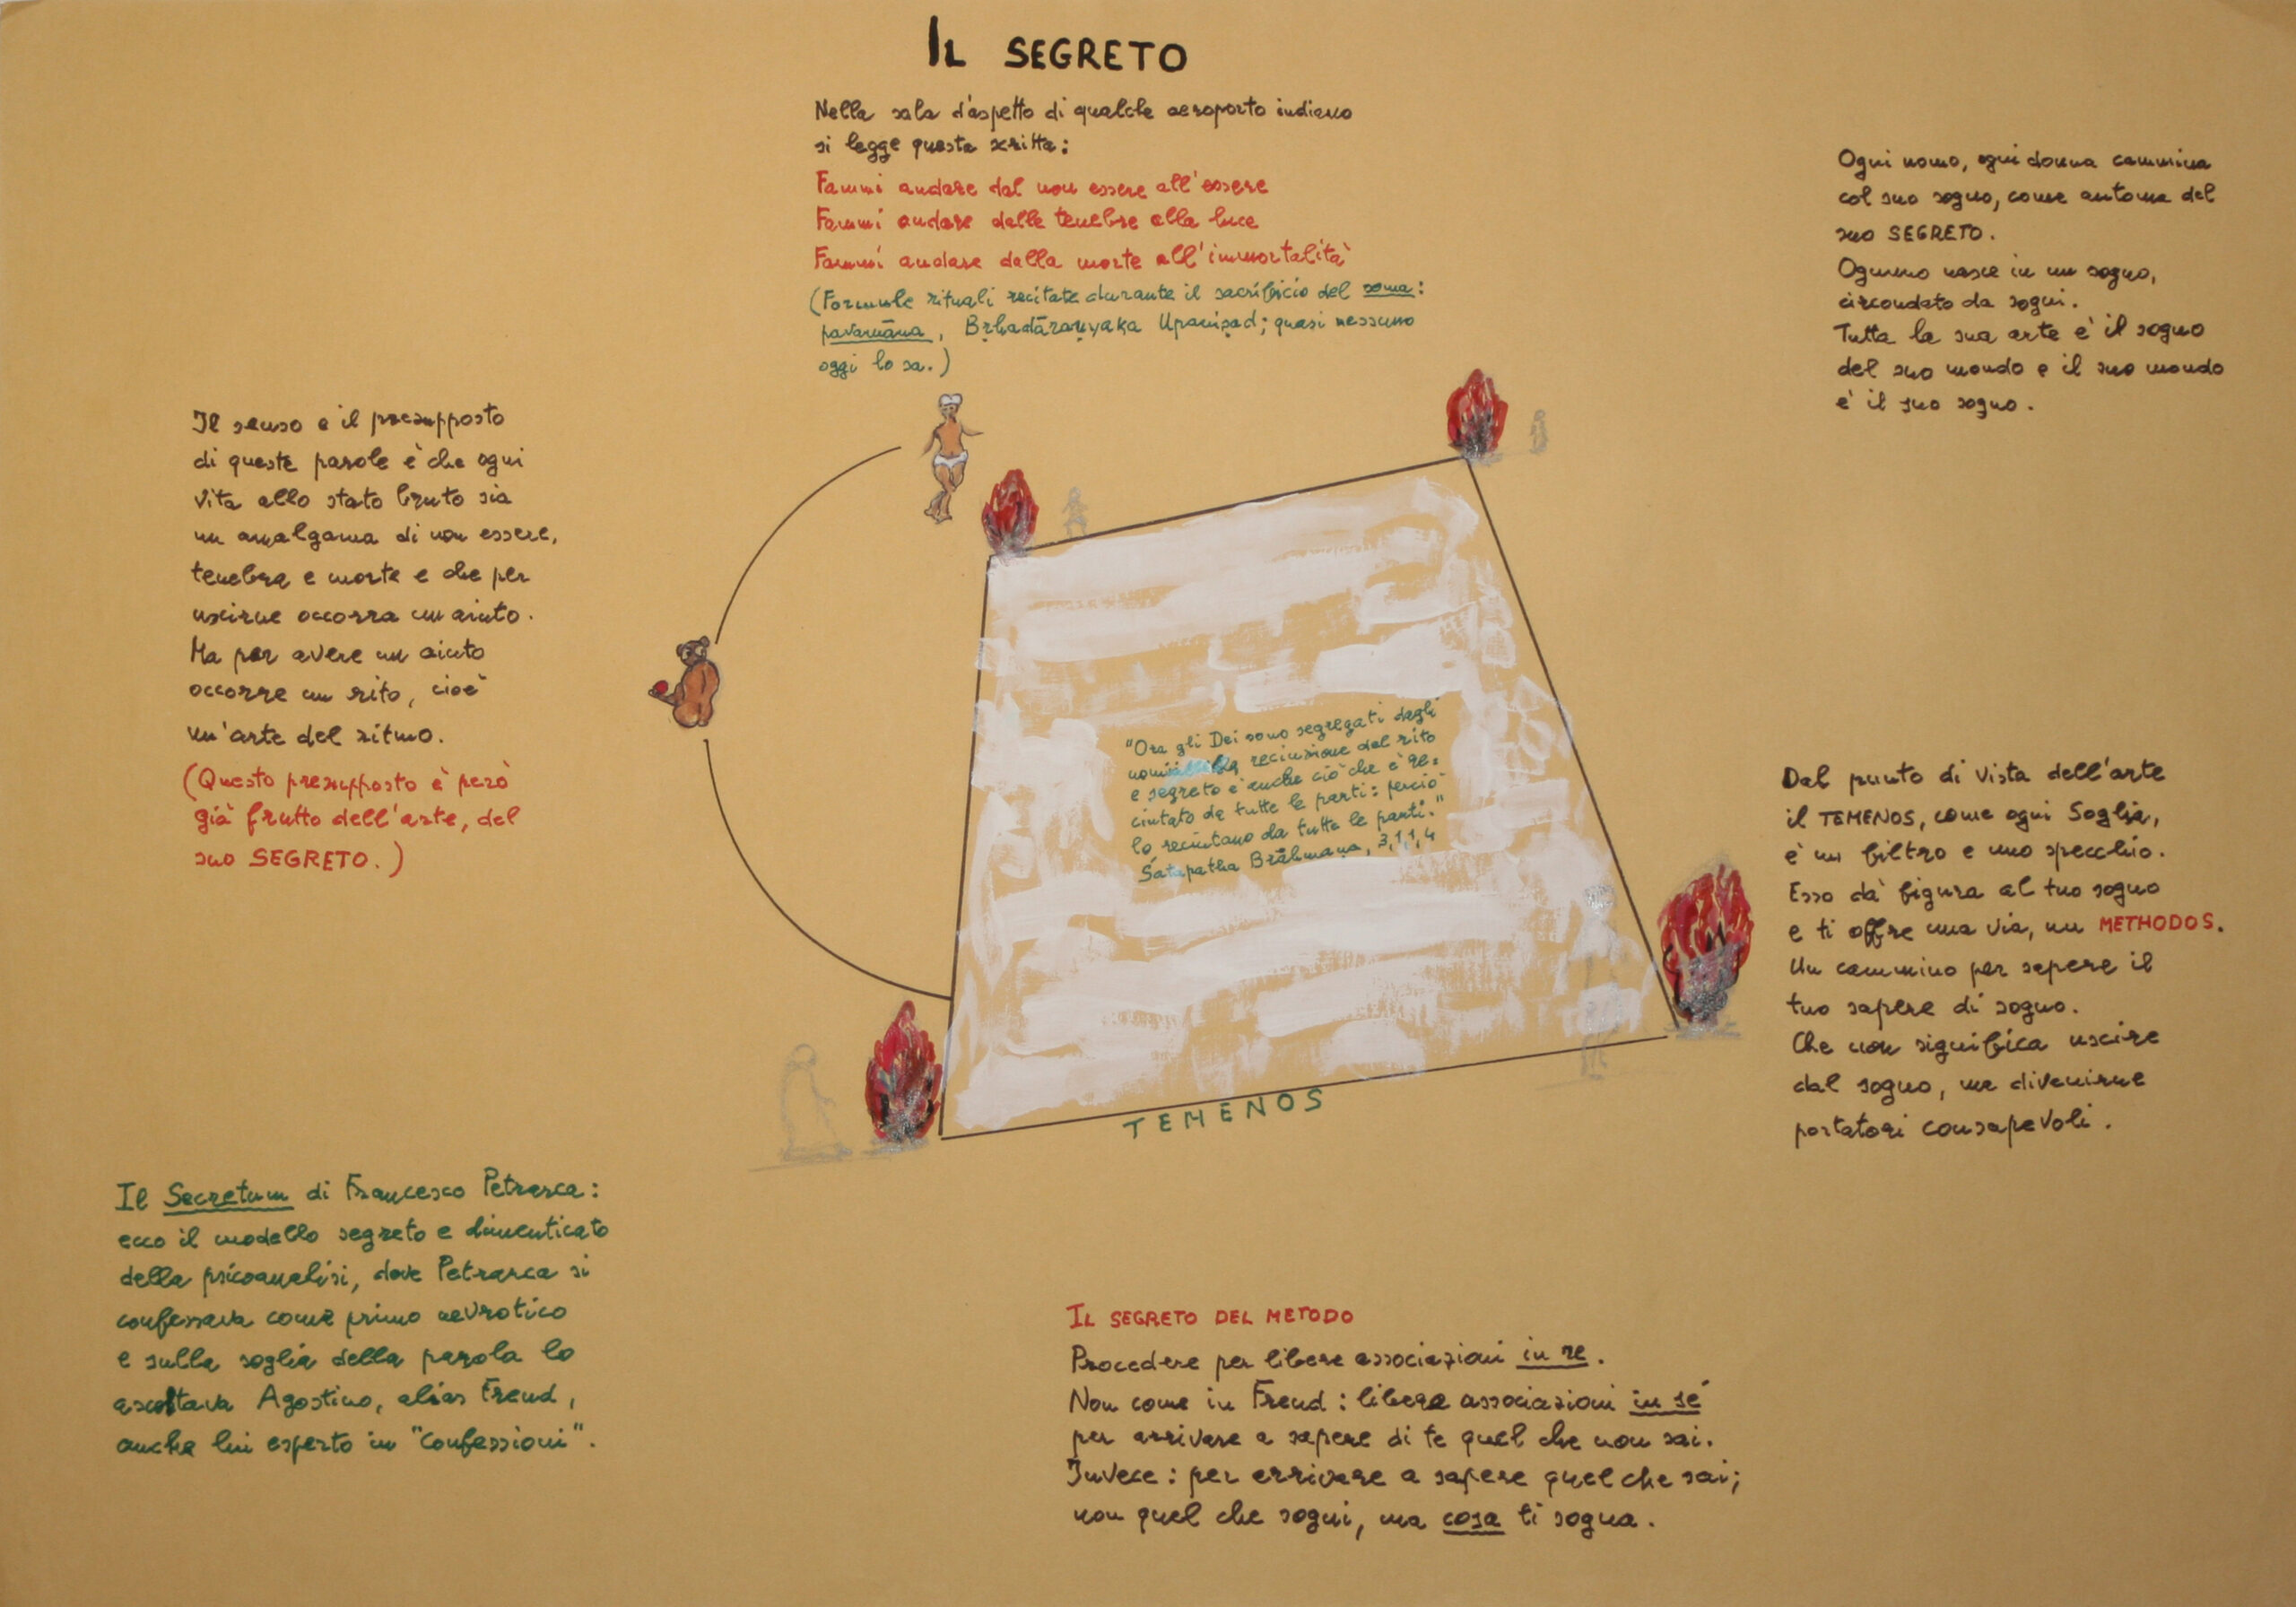 IL SEGRETO
Nella sala d'aspetto di qualche aeroporto indiano
si legge questa scritta:
Fammi andare dal non essere all'essere
Fammi andare dalle tenebre alla luce
Fammi andare dalla morte all'immortalità
(Formule rituali recitate durante il sacrificio del soma:
pavamāna, Bṛhadāraṇyaka Upaniṣad; quasi nessuno
oggi lo sa.)
Il senso e il presupposto
di queste parole è che ogni
vita allo stato bruto sia
un amalgama di non essere,
tenebra e morte e che per
uscirne occorra un aiuto.
Ma per avere un aiuto
occorre un rito, cioè
un'arte del ritmo.
(Questo presupposto è però
già frutto dell'arte, del
suo SEGRETO.)
Il Secretum di Francesco Petrarca:
ecco il modello segreto e dimenticato
della psicoanalisi, dove Petrarca si
confessava come primo nevrotico
e sulla soglia della parola lo
ascoltava Agostino, alias Freud,
anche lui esperto in "confessioni".
"Ora gli Dei sono segregati dagli
uomini recinzione del rito
e segreto è anche ciò che è re=
cintato da tutte le parti: perciò
lo recintano da tutte le parti."
Śatapatha Brāhmaṇa, 3,1,1,4
TEMENOS
Ogni uomo, ogni donna cammina
col suo sogno, come automa del
suo SEGRETO.
Ognuno nasce in un sogno,
circondato da sogni.
Tutta la sua arte è il sogno
del suo mondo e il suo mondo
è il suo sogno.
Dal punto di vista dell'arte
il TEMENOS, come ogni Soglia,
è un filtro e uno specchio.
Esso dà figura al tuo sogno
e ti offre una via, un METHODOS.
Un cammino per sapere il
tuo sapere di sogno.
Che non significa uscire
dal sogno, ma divenirne
portatori consapevoli.
IL SEGRETO DEL METODO
Procedere per libere associazioni in re.
Non come in Freud: libere associazioni in sé
per arrivare a sapere di te quel che non sai.
Invece: per arrivare a sapere quel che sai;
non quel che sogni, ma cosa ti sogna.